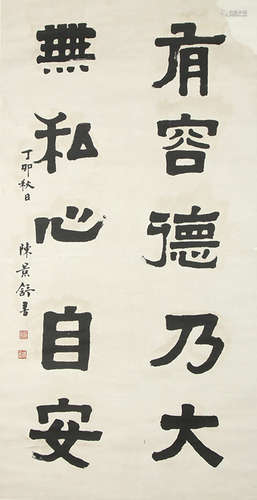 有容德乃大
無私心自安
丁卯秋日
陳景舒書